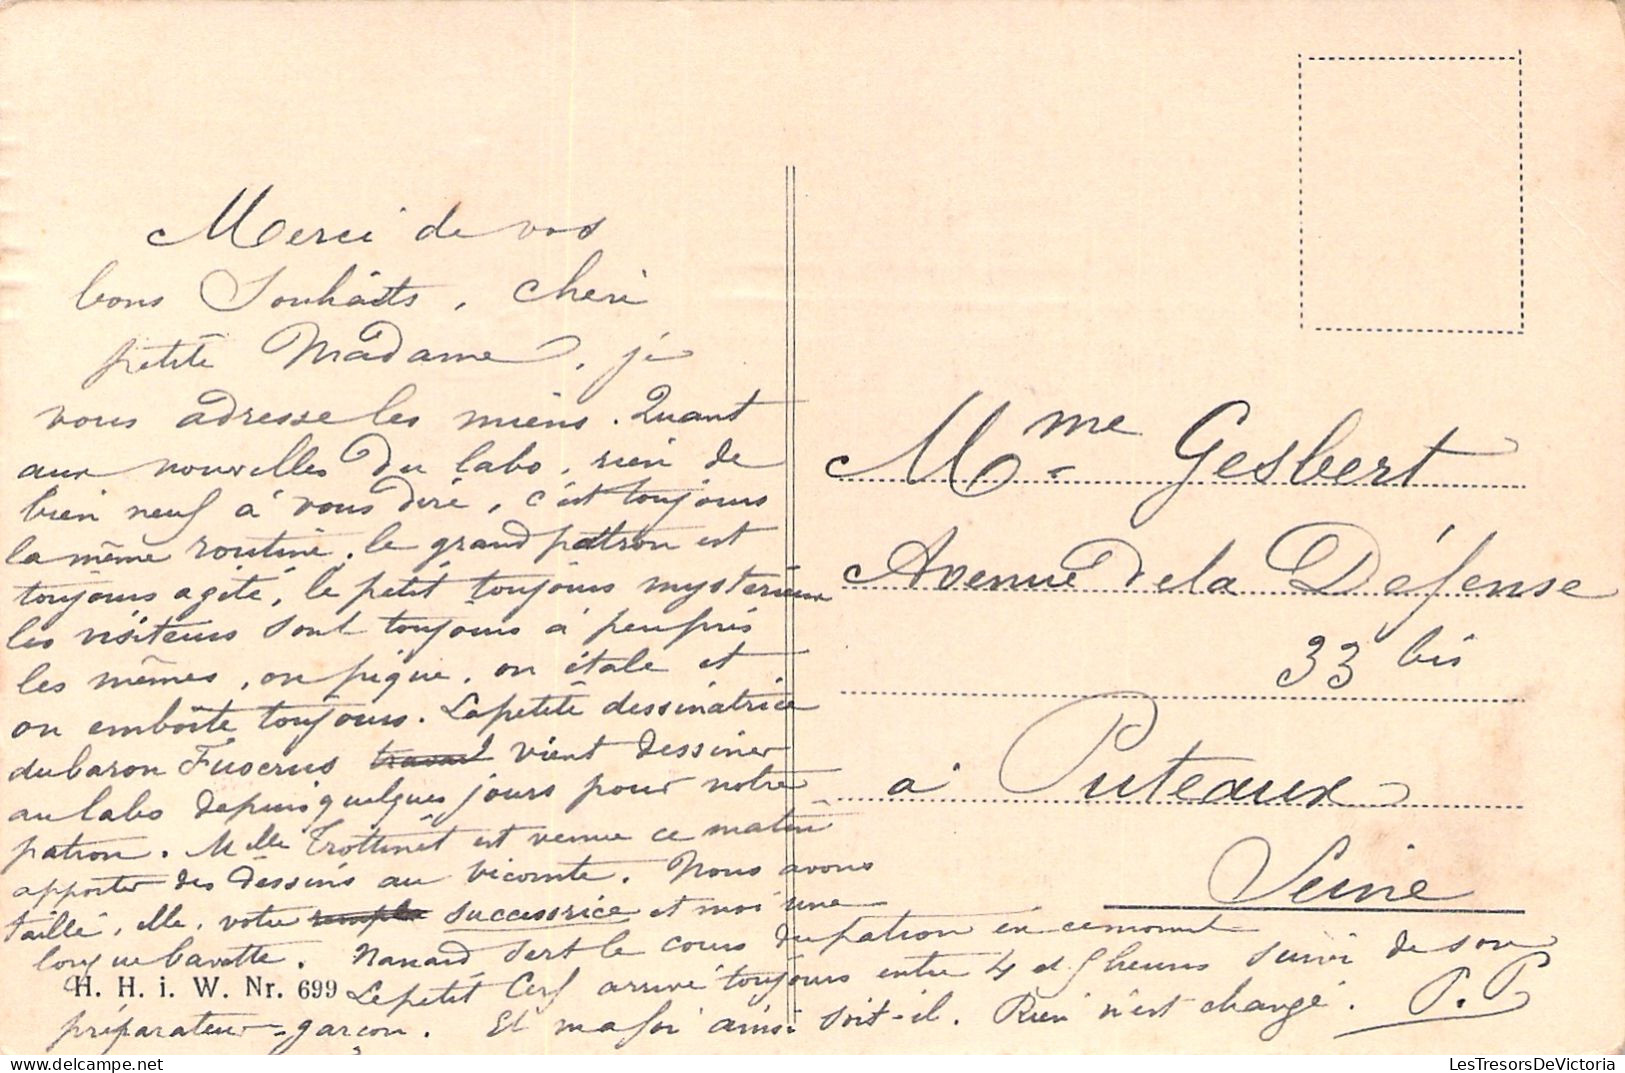 Merci de vos
bons Souhaits, chère
petite Madame, je
vous adresse les miens. Quant
aux nouvelles du labo, rien de
bien neuf à vous dire, c'est toujours
la même routine, le grand patron est
toujours agité, le petit toujours mystérieux
les visiteurs sont toujours à peu près
les mêmes, on pique, on étale et
on emboîte toujours. La petite dessinatrice
du baron vient dessiner
au labo depuis quelques jours pour notre
patron. Melle Trottinet est venue ce matin
apporter des dessins au vicomte. Nous avons
taillé, elle, votre successrice et moi une
longue bavette. Nanard sert le cours du patron en ce moment
Le petit Cerf arrive toujours entre 4 et 5 heures suivi de son
préparateur-garçon. Et ma foi ainsi soit-il. Rien n'est changé. P.P
H. H. i. W. Nr. 699
Mme Gesbert
Avenue de la Défense
33 bis
à Puteaux
Seine
LesTresorsDeVictoria